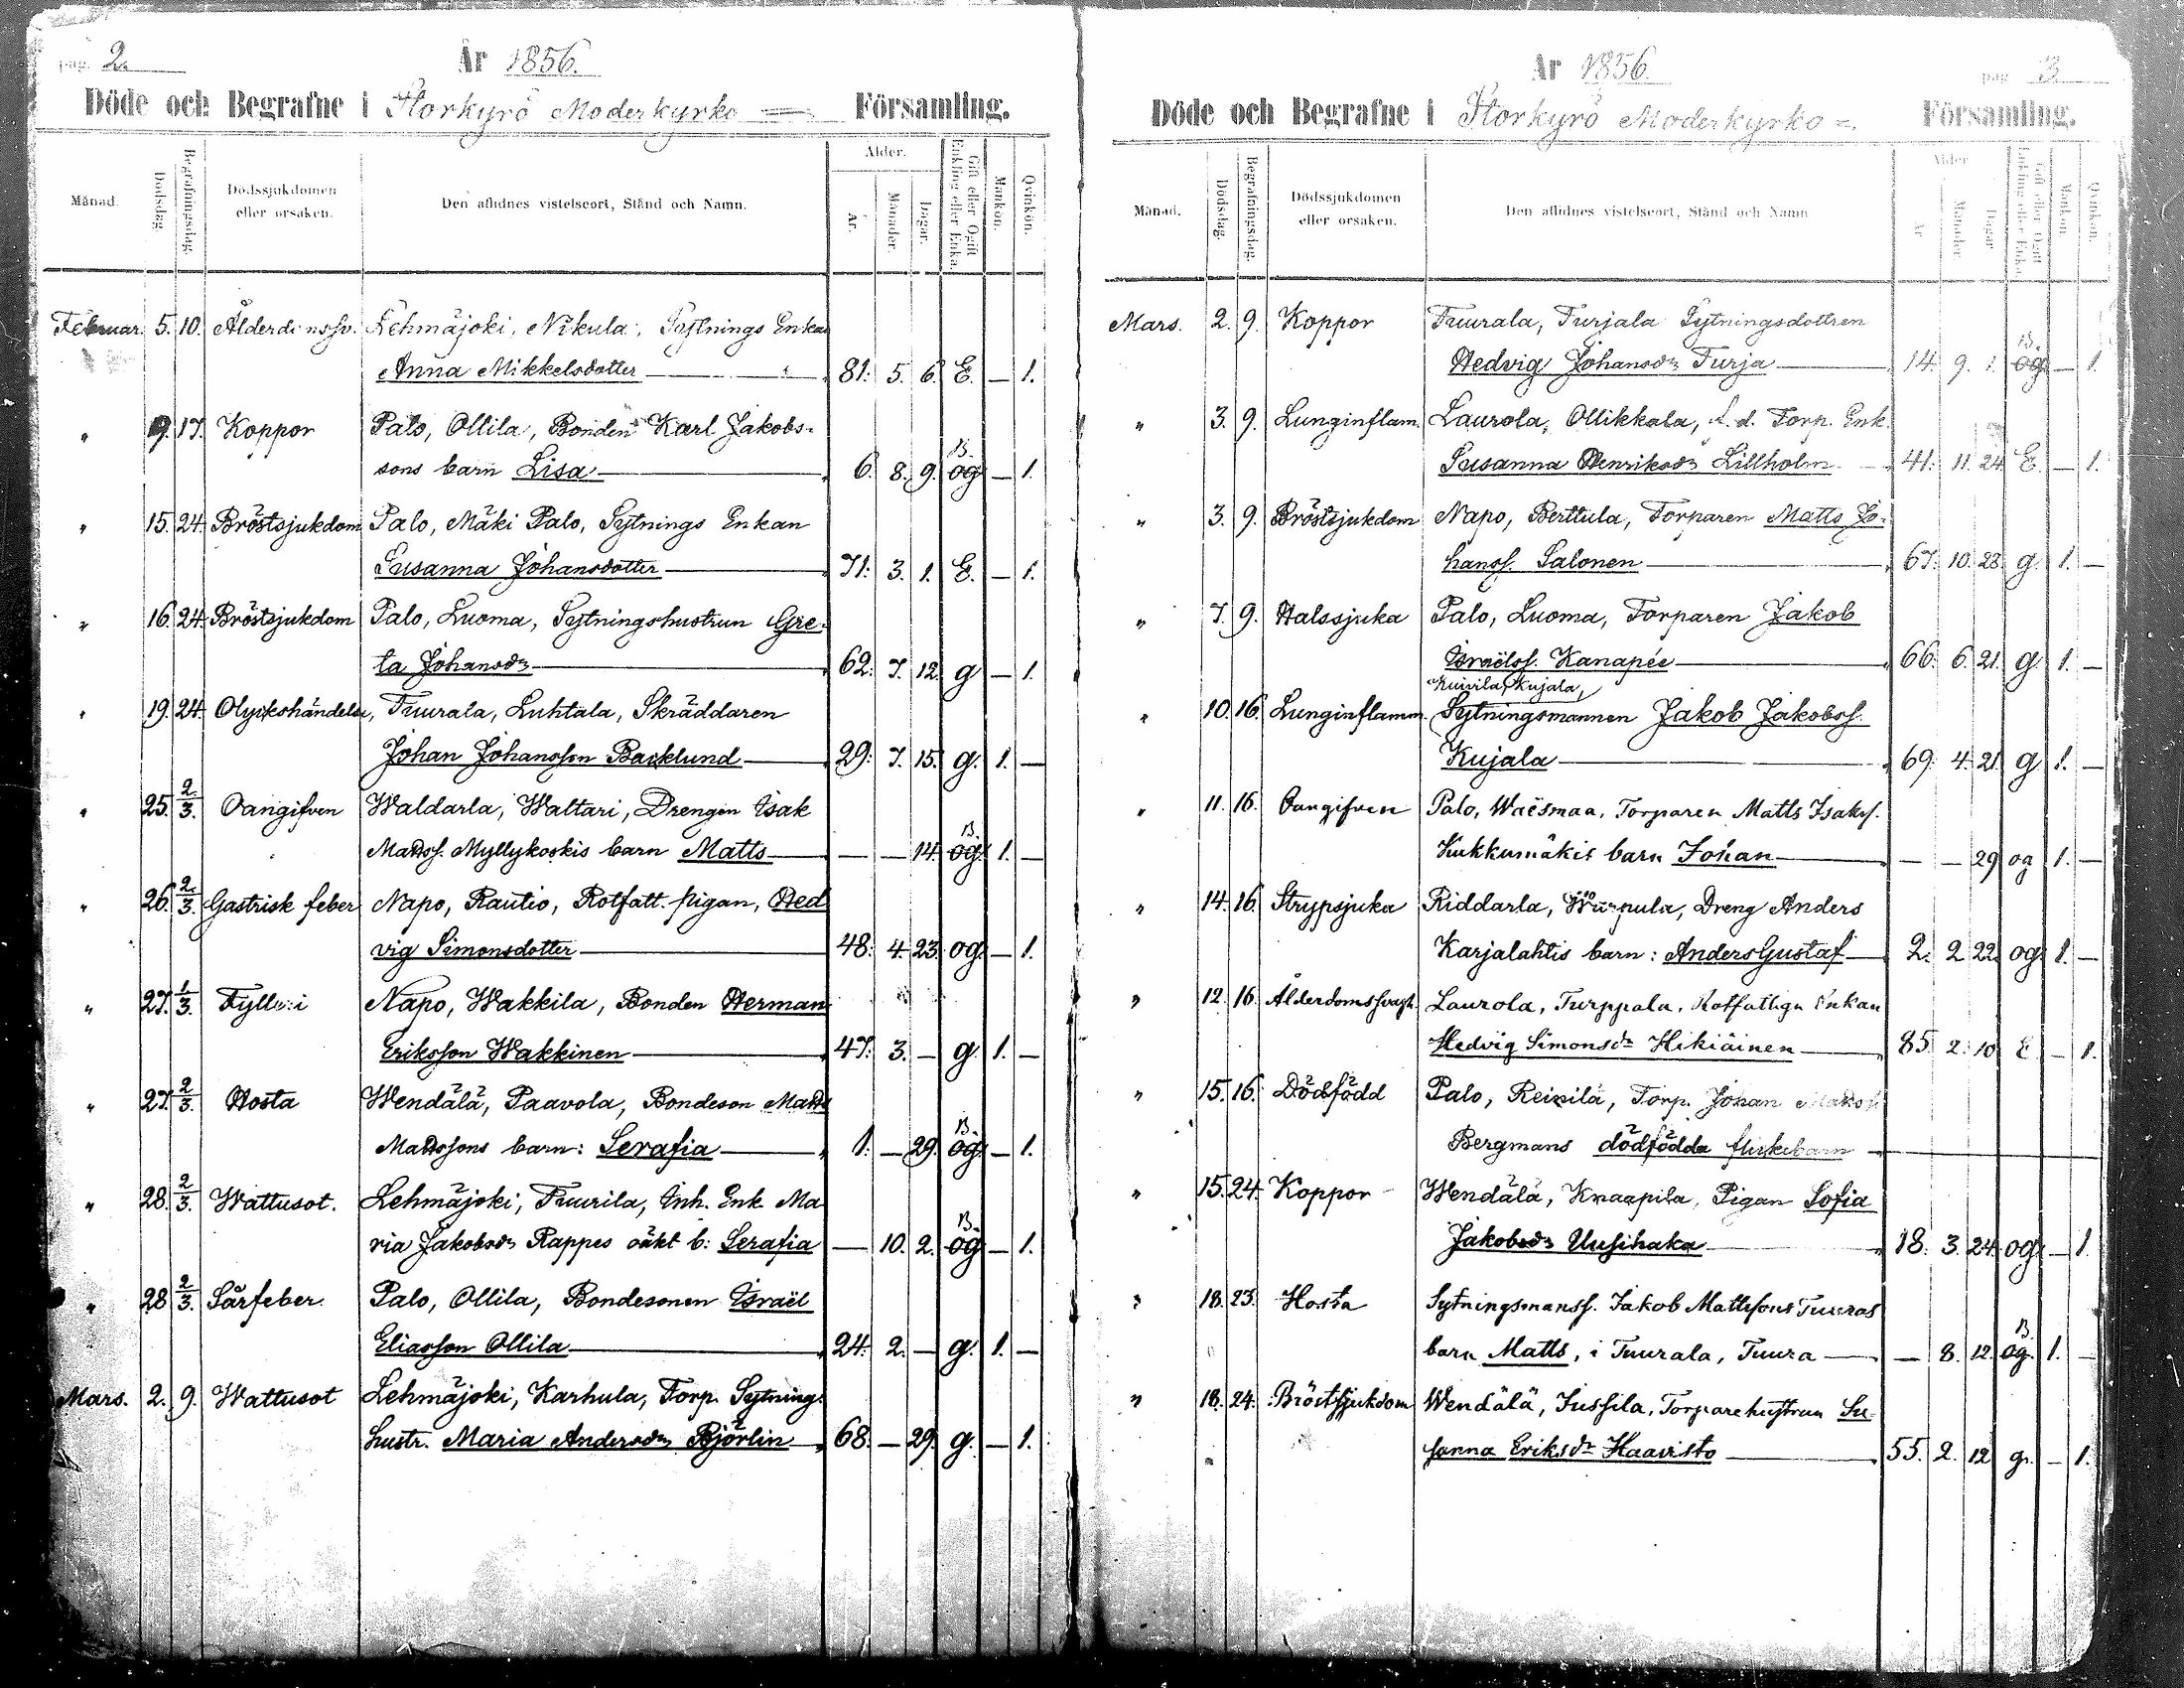 pag. 2.
År 1856.
Döde och Begrafne i Storkyrö Moderkyrko Församling.
Månad. Dödsdag. Begrafningsdag. Dödssjukdomen eller orsaken. Den aflidnes vistelseort, Stånd och Namn. Ålder. År. Månader. Dagar. Gift eller Ogift Enkling eller Enka. Mankön. Qvinkön.
Februar. 5. 10. Ålderdomssv. Lehmäjoki, Nikula, Sytnings Enkan
Anna Mikkelsdotter 81. 5. 6. E. — 1.
" 9. 17. Koppor Palo, Ollila, Bonden Karl Jakobs-
sons barn Lisa 6. 8. 9. B. og — 1.
" 15. 24. Bröstsjukdom Palo, Mäki Palo, Sytnings Enkan
Susanna Johansdotter 71. 3. 1. E. — 1.
" 16. 24. Bröstsjukdom Palo, Luoma, Sytningshustrun Gre-
ta Johansdr 62. 7. 12. g — 1.
" 19. 24. Olyckshändelse, Tuurala, Luhtala, Skräddaren
Johan Johansson Backlund 29. 7. 15. g. 1. —
" 25. 2/3. Oangifven Waldarla, Waltari, Drengen Isak
Matts. Myllykoskis barn Matts — — 14. B. og. 1. —
" 26. 2/3. Gastrisk feber Napo, Rautio, Rotfatt. pigan, Hed
vig Simonsdotter 48. 4. 23. og. — 1.
" 27. 1/3. Fylleri Napo, Wakkila, Bonden Herman
Eriksson Wakkinen 47. 3. — g. 1. —
" 27. 2/3. Hosta Wendälä, Paavola, Bondeson Matts
Mattssons barn: Serafia 1. — 29. B. og. — 1.
" 28. 2/3. Wattusot. Lehmäjoki, Tuurila, Inh. Enk. Ma
ria Jakobsdr Rappes oäkt b: Serafia — 10. 2. B. og — 1.
" 28. 2/3. Sårfeber. Palo, Ollila, Bondesonen Israël
Eliasson Ollila 24. 2. — g. 1. —
Mars. 2. 9. Wattusot Lehmäjoki, Karhula, Torp. Sytnings
hustr. Maria Andersdr Björlin 68. — 29. g. — 1.
År 1856. pag. 3
Döde och Begrafne i Storkyro Moderkyrko Församling.
Månad. Dödsdag. Begrafningsdag. Dödssjukdomen eller orsaken. Den aflidnes vistelseort, Stånd och Namn Ålder År Månader Dagar Gift eller Ogift Enkling eller Enka. Mankön. Qvinkön.
Mars. 2. 9. Koppor Tuurala, Turjala Sytningsdottren
Hedvig Johansdr Turja 14. 9. 1. B. og — 1.
" 3. 9. Lunginflam. Laurola, Ollikkala, f. d. Torp. Enk.
Susanna Henriksdr Lillholm 41. 11. 24. E. — 1.
" 3. 9. Bröstsjukdom Napo, Berttula, Torparen Matts Jo-
hanss. Salonen 67. 10. 28. g. 1. —
" 7. 9. Halssjuka Palo, Luoma, Torparen Jakob
Israëlss. Kanapée 66. 6. 21. g 1. —
Kuivila, Kujala,
" 10. 16. Lunginflamm. Sytningsmannen Jakob Jakobss.
Kujala 69. 4. 21. g 1. —
" 11. 16. Oangifven Palo, Waësmaa, Torparen Matts Isakss.
Kukkumäkis barn Johan — — 29 og 1. —
" 14. 16. Strypsjuka Riddarla, Dreng Anders
Karjalahtis barn: Anders Gustaf 2. 2 22 og 1. —
" 12. 16 Ålderdomssvagh. Laurola, Turppala, Rotfattiga Enkan
Hedvig Simonsdr Hikiäinen 85. 2. 10 E. — 1.
" 15. 16. Dödfödd Palo, Reinilä, Torp. Johan
Bergmans dödfödda flickebarn
" 15. 24. Koppor Wendälä, Knaapila, Pigan Sofia
Jakobsdr Uusihaka 18. 3. 24. og. — 1
" 18. 23. Hosta Sytningsmanss. Jakob Mattssons Tuuras
barn Matts, i Tuurala, Tuura — 8. 12. B. og. 1. —
" 18. 24. Bröstsjukdom Wendälä, Jussila, Torparehustrun Su-
sanna Eriksdr Haavisto 55. 2. 12 g. — 1.